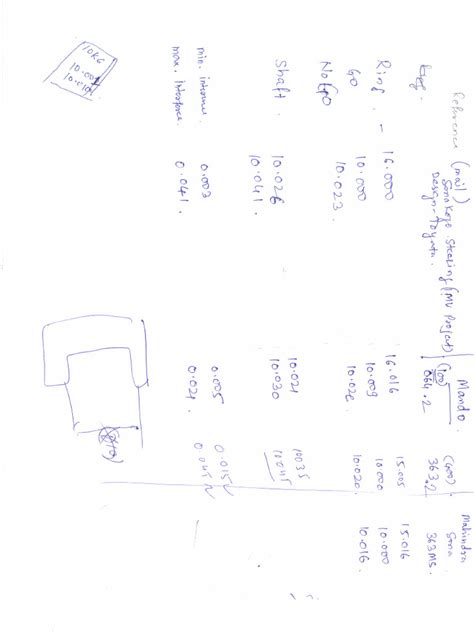 Reference (mail) Sona Koyo Steering (MV Project)
Design - Toyota.
Mando.
(100)
064.2
(400)
363.2
Mahindra
Sona
363 MS.
Ring. - 16.000 16.016 15.005 15.016
GO 10.000 10.009 10.000 10.000
NoGo 10.023 10.020 10.016
Shaft. 10.026 10.024 10.035
10.041 10.030 10.045
min. 0.003 0.005 0.015
max. interfernce. 0.041 0.024 0.045
10K6
10.001
10.010